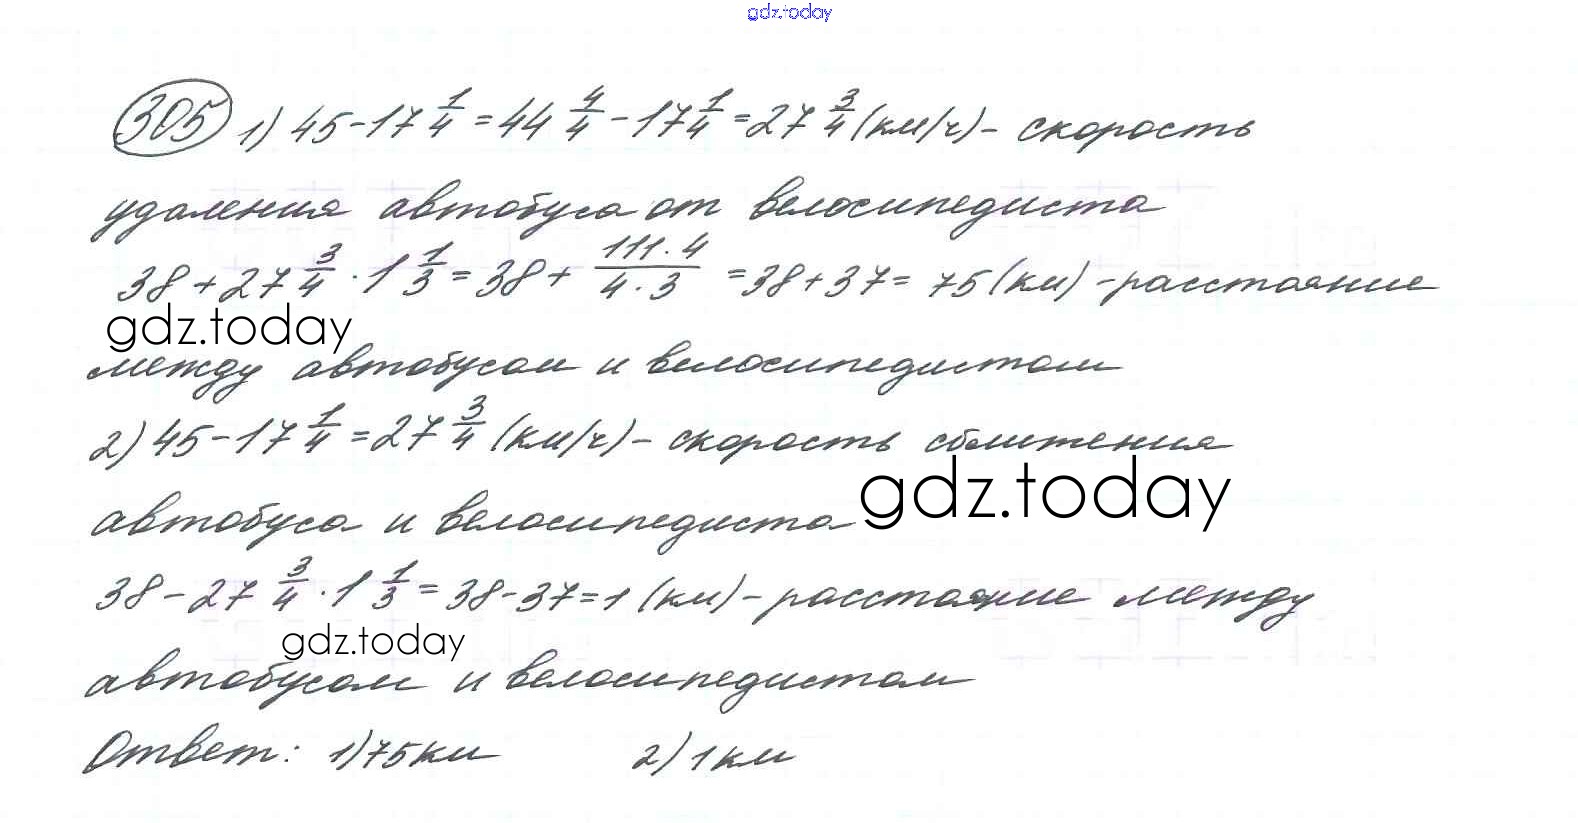 gdz.today
305 1) 45-17 1/4 = 44 4/4 - 17 1/4 = 27 3/4 (км/ч) - скорость
удаления автобуса от велосипедиста
38 + 27 3/4 · 1 1/3 = 38 + 111·4/4·3 = 38+37= 75 (км) - расстояние
gdz.today
между автобусом и велосипедистом
2) 45-17 1/4 = 27 3/4 (км/ч) - скорость сближения
gdz.today
автобуса и велосипедиста
38 - 27 3/4 · 1 1/3 = 38-37=1 (км) - расстояние между
gdz.today
автобусом и велосипедистом
Ответ: 1) 75 км 2) 1 км